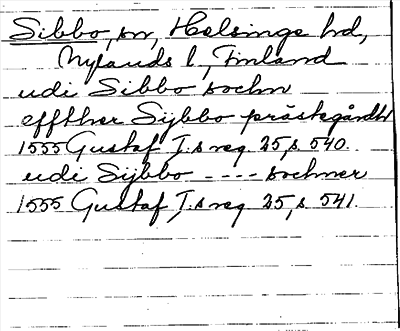 Sibbo, sn, Helsinge hd,
Nylands l, Finland
udi Sibbo sochn
effther Sijbbo prästegårdh
1555 Gustaf I:s reg 25, s. 540.
udi Sijbbo ---- sochner
1555 Gustaf I:s reg 25, s. 541.